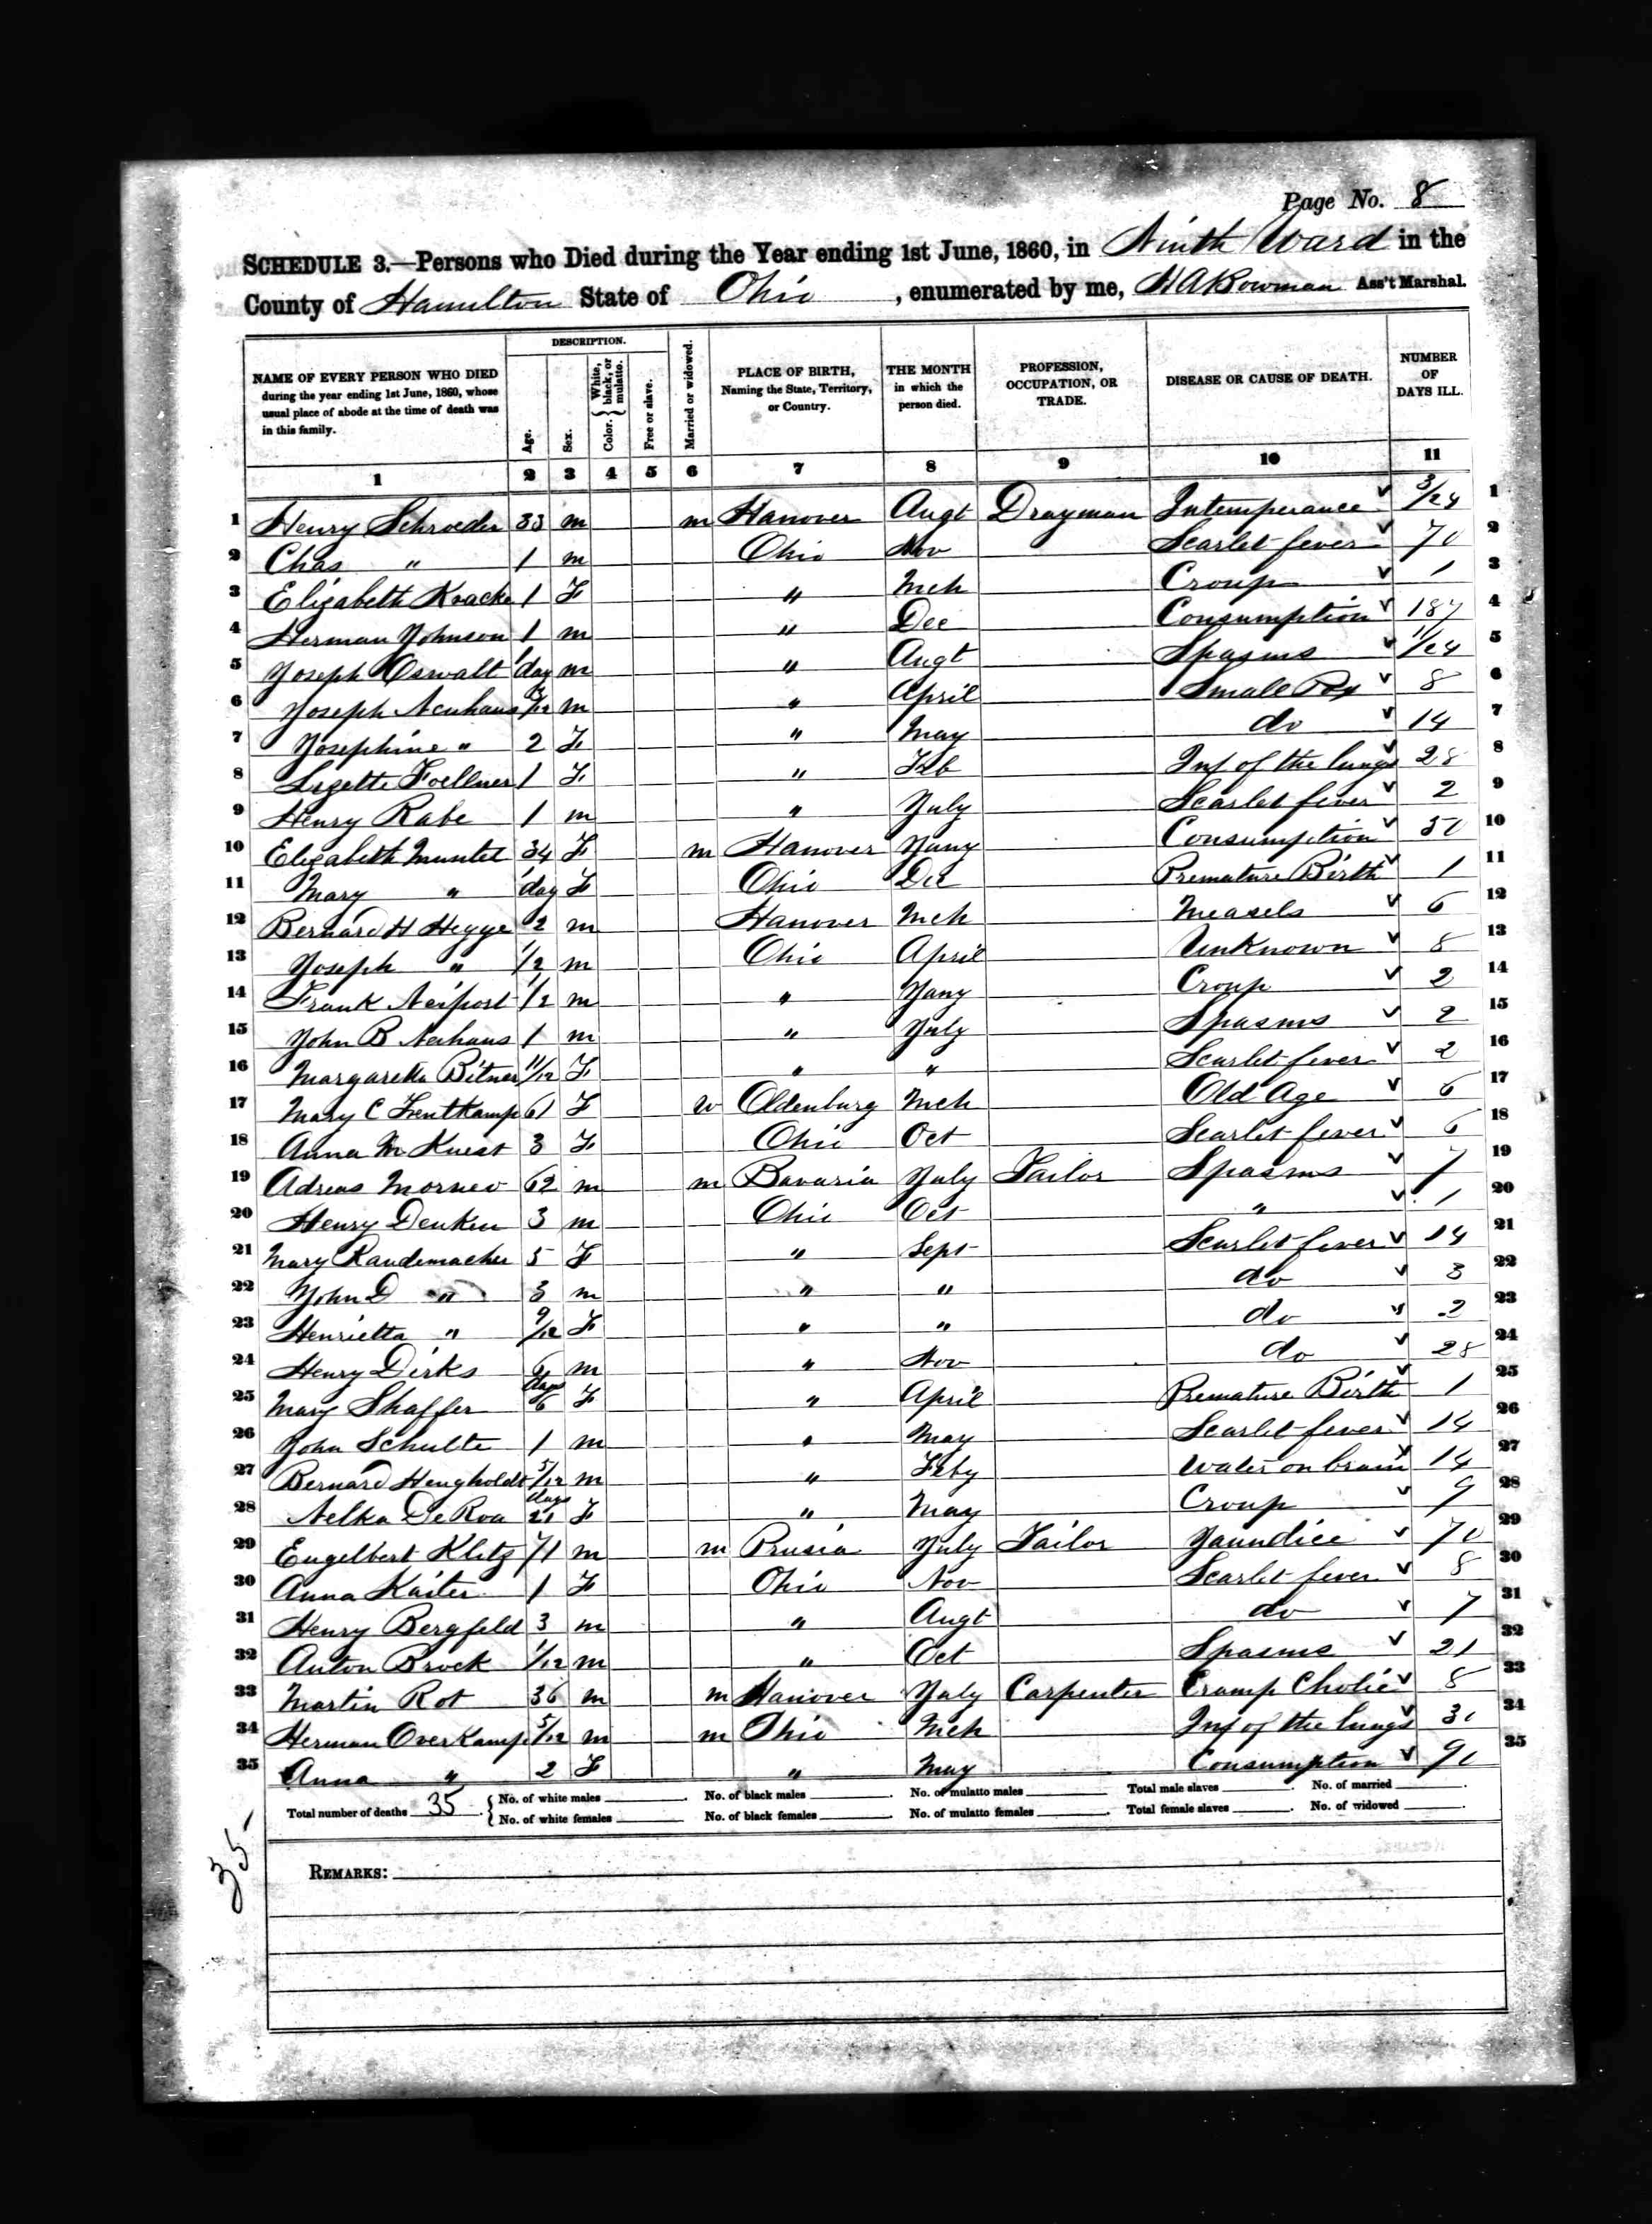 Page No. 8
SCHEDULE 3.—Persons who Died during the Year ending 1st June, 1860, in Ninth Ward in the
County of Hamilton State of Ohio, enumerated by me, H A Bowman Ass't Marshal.
NAME OF EVERY PERSON WHO DIED during the year ending 1st June, 1860, whose usual place of abode at the time of death was in this family. DESCRIPTION. Age. Sex. Color. { White, black, or mulatto. Free or slave. Married or widowed. PLACE OF BIRTH, Naming the State, Territory, or Country. THE MONTH in which the person died. PROFESSION, OCCUPATION, OR TRADE. DISEASE OR CAUSE OF DEATH. NUMBER OF DAYS ILL.
1 2 3 4 5 6 7 8 9 10 11
1 Henry Schroeder 33 m m Hanover Augt Drayman Intemperance 3/24 1
2 Chas " 1 m Ohio Nov Scarlet fever 70 2
3 Elizabeth Kracke 1 F " Mch Croup 1 3
4 Herman Johnson 1 m " Dec Consumption 187 4
5 Joseph Oswalt 1 day m " Augt Spasms 11/24 5
6 Joseph Neuhaus /12 m " April Small Pox 8 6
7 Josephine " 2 F " May do 14 7
8 Lizette Foellner 1 F " Feb Inf of the lungs 28 8
9 Henry Rabe 1 m " July Scarlet fever 2 9
10 Elizabeth Muntel 34 F m Hanover Jany Consumption 50 10
11 Mary " 1 day F Ohio Dec Premature Birth 1 11
12 Bernard H Hegge 2 m Hanover Mch Measels 6 12
13 Joseph " 1/2 m Ohio April Unknown 8 13
14 Frank Neiport 1/2 m " Jany Croup 2 14
15 John B Nerhaus 1 m " July Spasms 2 15
16 Margaretta Bitner 11/12 F " " Scarlet fever 2 16
17 Mary C Trentkamp 61 F w Oldenburg Mch Old Age 6 17
18 Anna M Knest 3 F Ohio Oct Scarlet fever 6 18
19 Adreas Morneo 62 m m Bavaria July Tailor Spasms 7 19
20 Henry Denken 3 m Ohio Oct " 1 20
21 Mary Randemacher 5 F " Sept Scarlet fever 14 21
22 John D " 3 m " " do 3 22
23 Henrietta " 9/12 F " " do 2 23
24 Henry Dirks 6 m " Nov do 28 24
25 Mary Shaffer days 6 F " April Premature Birth 1 25
26 John Schulte 1 m " May Scarlet fever 14 26
27 Bernard Hengholdt 5/12 m " Feby Water on brain 14 27
28 Nelka De Roa days 21 F " May Croup 9 28
29 Engelbert Klitz 71 m m Prusia July Tailor Jaundice 70 29
30 Anna Kaiter 1 F Ohio Nov Scarlet fever 8 30
31 Henry Bergfeld 3 m " Augt do 7 31
32 Anton Brock 1/12 m " Oct Spasms 21 32
33 Martin Rot 36 m m Hanover July Carpenter Cramp Cholic 8 33
34 Herman Overkamp 5/12 m m Ohio Mch Inf of the lungs 30 34
35 Anna " 2 F " May Consumption 90 35
Total number of deaths 35 { No. of white males . No. of black males . No. of mulatto males Total male slaves . No. of married .
No. of white females No. of black females . No. of mulatto females . Total female slaves . No. of widowed .
35
REMARKS: